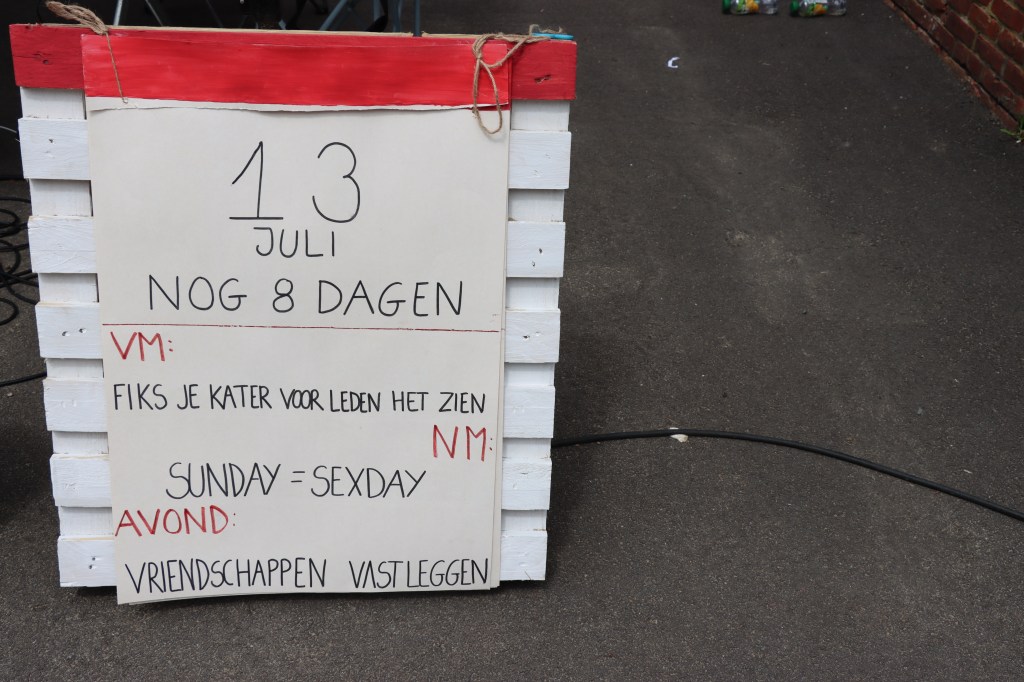 13
JULI
NOG 8 DAGEN
VM:
FIKS JE KATER VOOR LEDEN HET ZIEN
NM:
SUNDAY = SEXDAY
AVOND:
VRIENDSCHAPPEN VASTLEGGEN